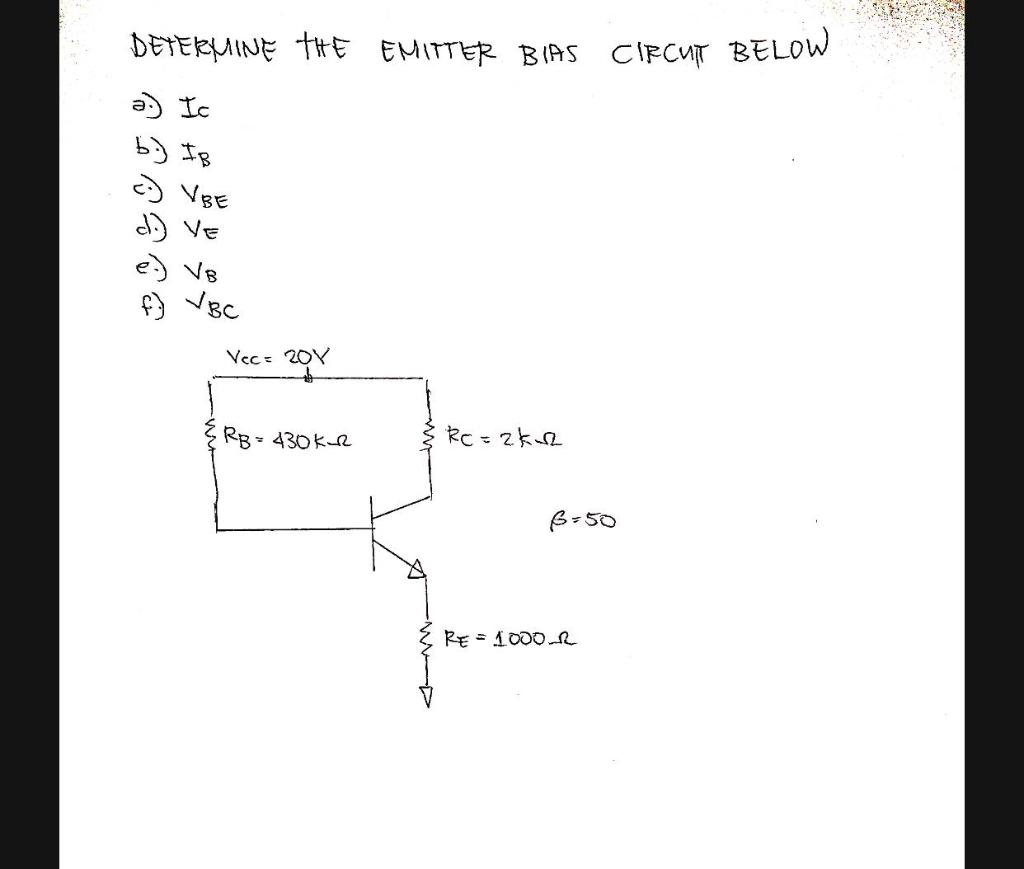 DETERMINE THE EMITTER BIAS CIRCUIT BELOW
a.) IC
b.) IB
c.) VBE
d.) VE
e.) VB
f.) VBC
VCC = 20V
RB = 430KΩ
RC = 2kΩ
β = 50
RE = 1000Ω